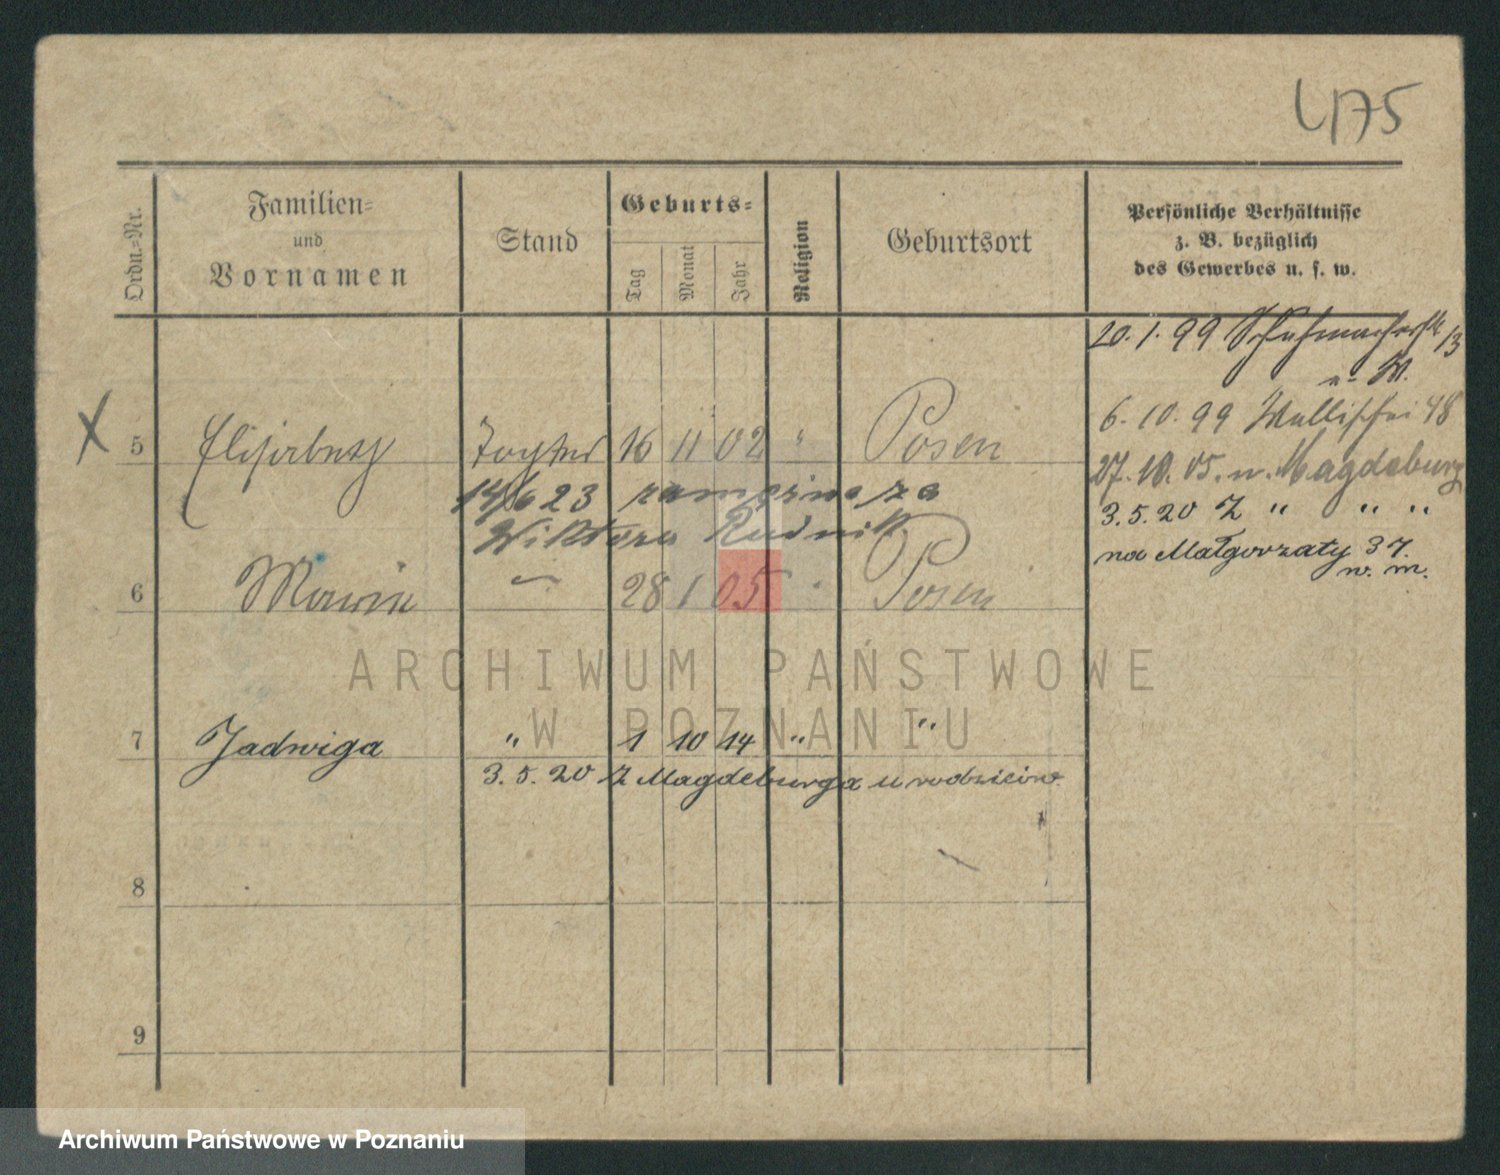 475
Ordn.=Nr.
Familien=
und
Vornamen
Stand
Geburts=
Tag
Monat
Jahr
Religion
Geburtsort
Persönliche Verhältnisse
z. B. bezüglich
des Gewerbes u. s. w.
20. 1. 99 Schuhmacherstr 13
n. W.
6. 10. 99 Wallischei 48
27. 10. 05. n. Magdeburg
3. 5. 20 Z " " "
na Małgorzaty 37.
w. m.
5 Elisabeth Tochter 16 11 02 " Posen
14/6 23 zamężna za
Wiktora Rudnik
6 28 1 05 Posen
7 Jadwiga " 1 10 14 " "
3. 5. 20 Z Magdeburga u rodziców.
8
9
ARCHIWUM PAŃSTWOWE
W POZNANIU
Archiwum Państwowe w Poznaniu